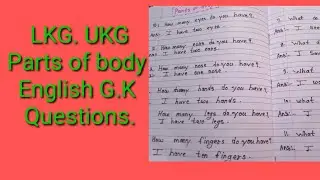 LKG. UKG
Parts of body.
English G.K
Questions.
How many eyes do you have?
Ans: I have two eyes.
How many nose do you have?
Ans: I have one nose.
How many
do you have?
How many hands do you have?
I have two hands.
How many legs do you have?
I have two legs.
How many fingers do you have?
I have ten fingers.
8. What
Ans: I
9. What
Ans: I
10. What
Ans: I
11. What
Ans: I